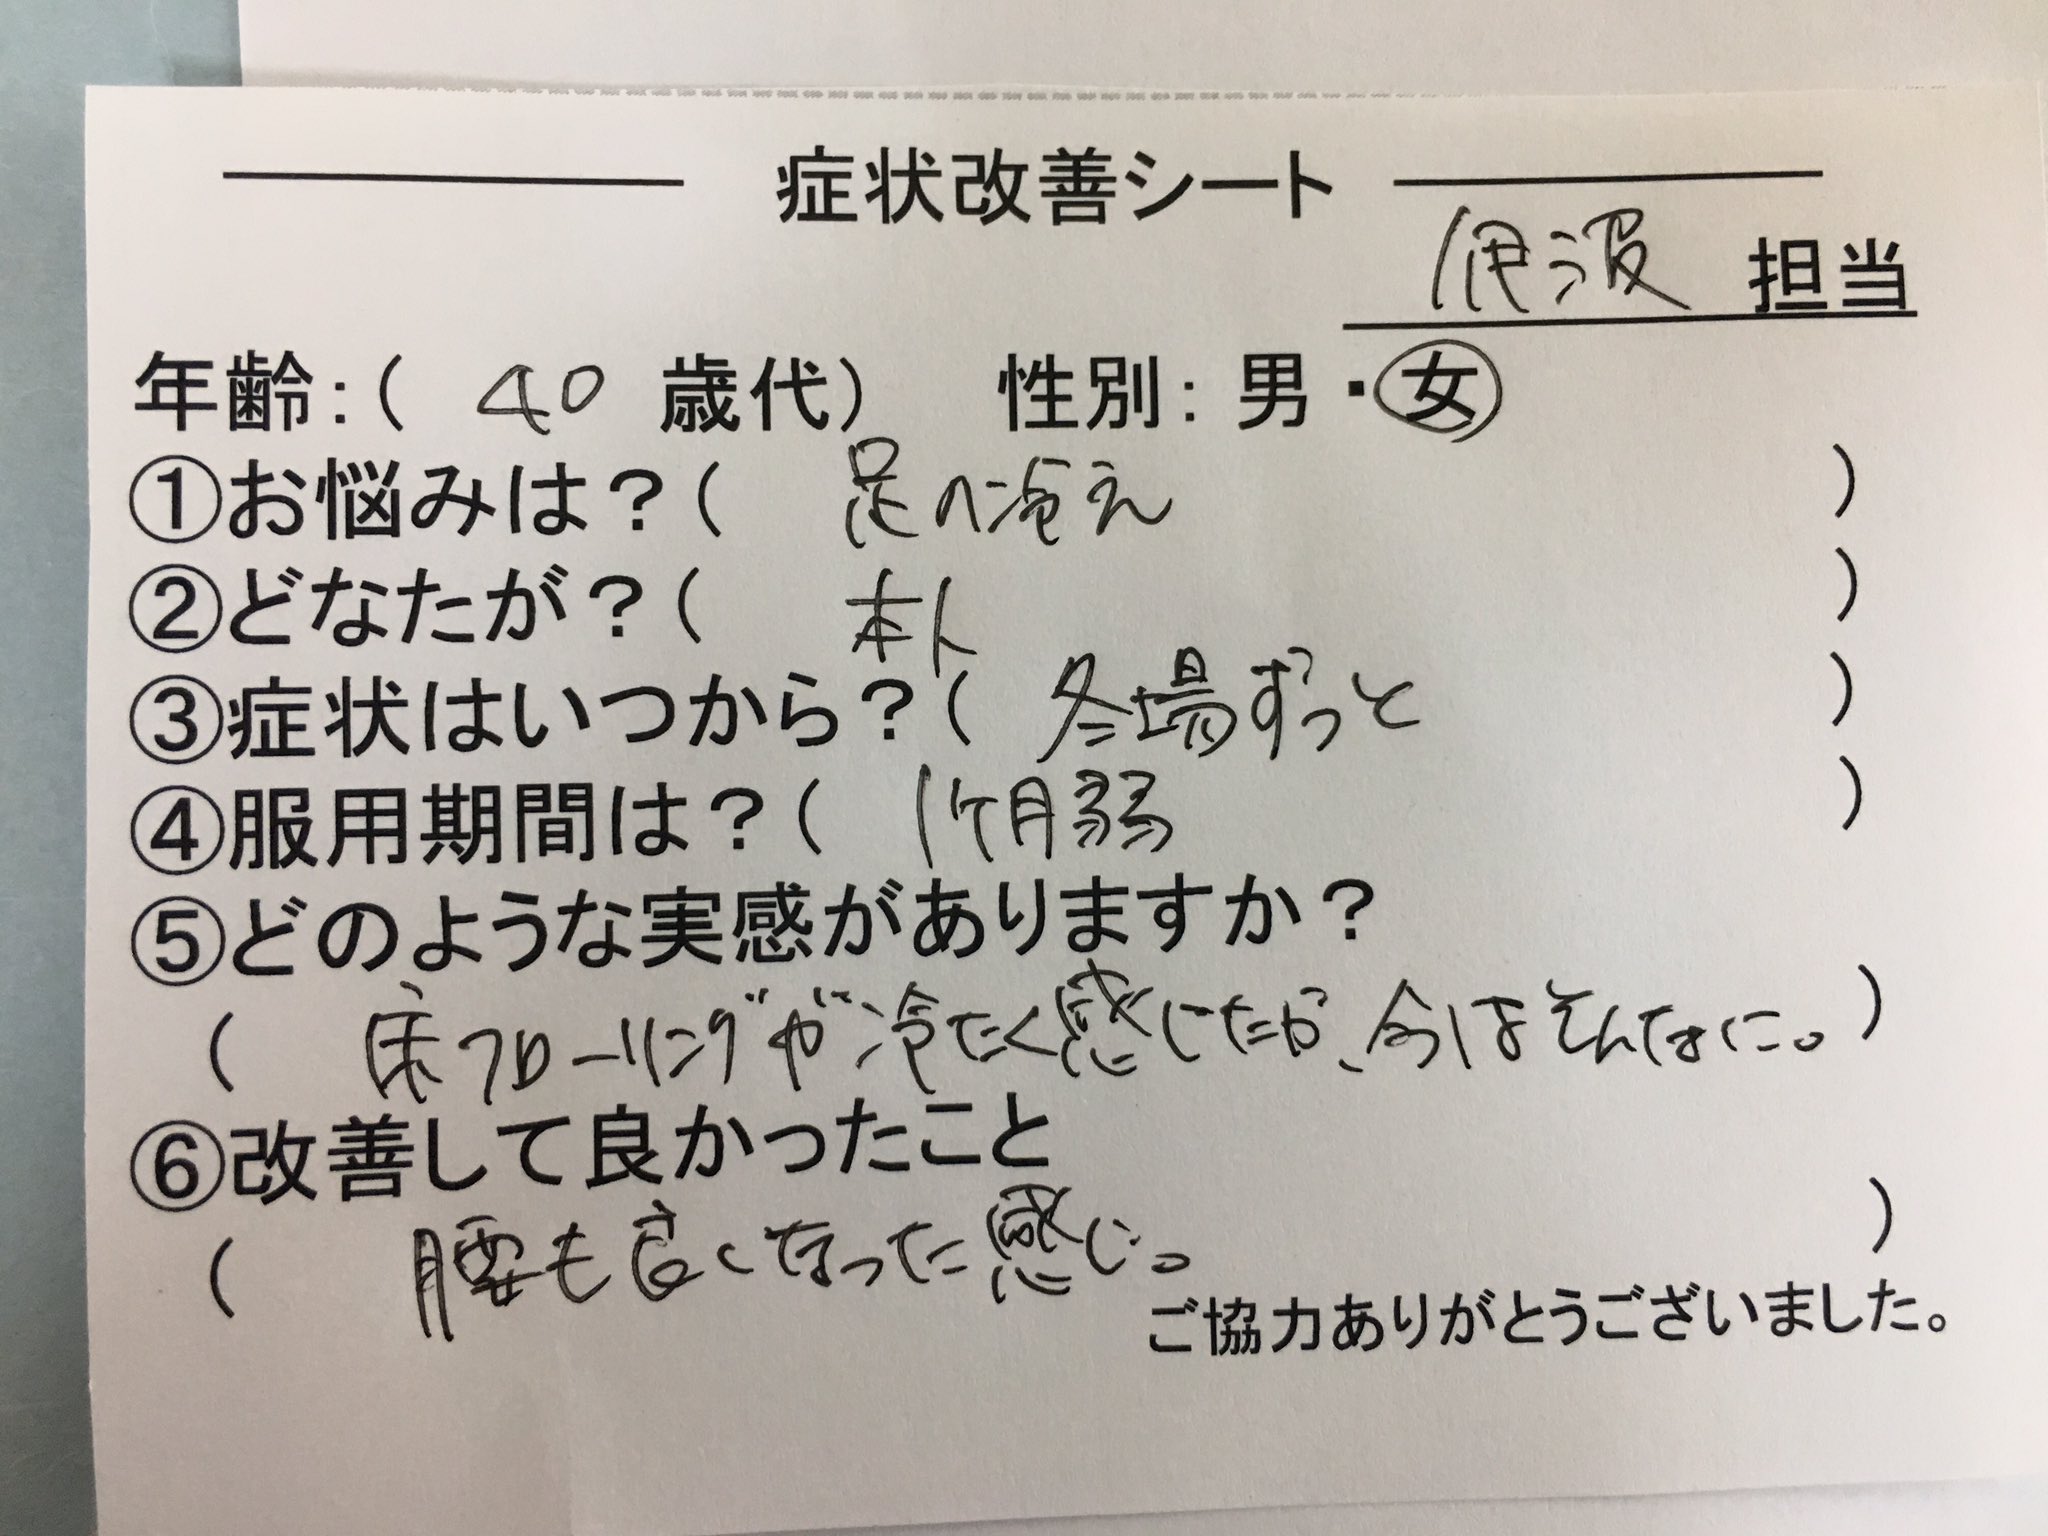 症状改善シート
担当
年齢:( 40 歳代) 性別:男・女
①お悩みは?( 足の冷え )
②どなたが?( 本人 )
③症状はいつから?( 冬場ずっと )
④服用期間は?( 1ケ月弱 )
⑤どのような実感がありますか?
( 床フローリングが冷たく感じたが、今はそんなに。)
⑥改善して良かったこと
( 腰も良くなった感じ。 )
ご協力ありがとうございました。